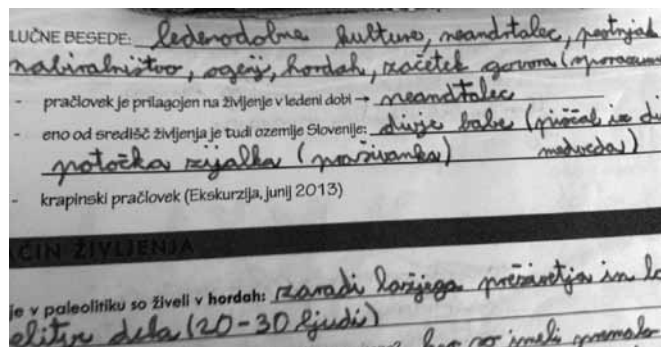 LUČNE BESEDE: ledenodobne kulture, neandrtalec, pestnjak
nabiralništvo, ogenj, hordah, začetek govora (sporazum
- pračlovek je prilagojen na življenje v ledeni dobi → neandtalec
- eno od središč življenja je tudi ozemlje Slovenije: divje babe (piščal iz di
potočka zijalka (praživanka) medveda)
- krapinski pračlovek (Ekskurzija, junij 2013)
ČIN ŽIVLJENJA
je v paleolitiku so živeli v hordah: zaradi lažjega preživetja in
elitve dela (20-30 ljudi)
so imeli premalo